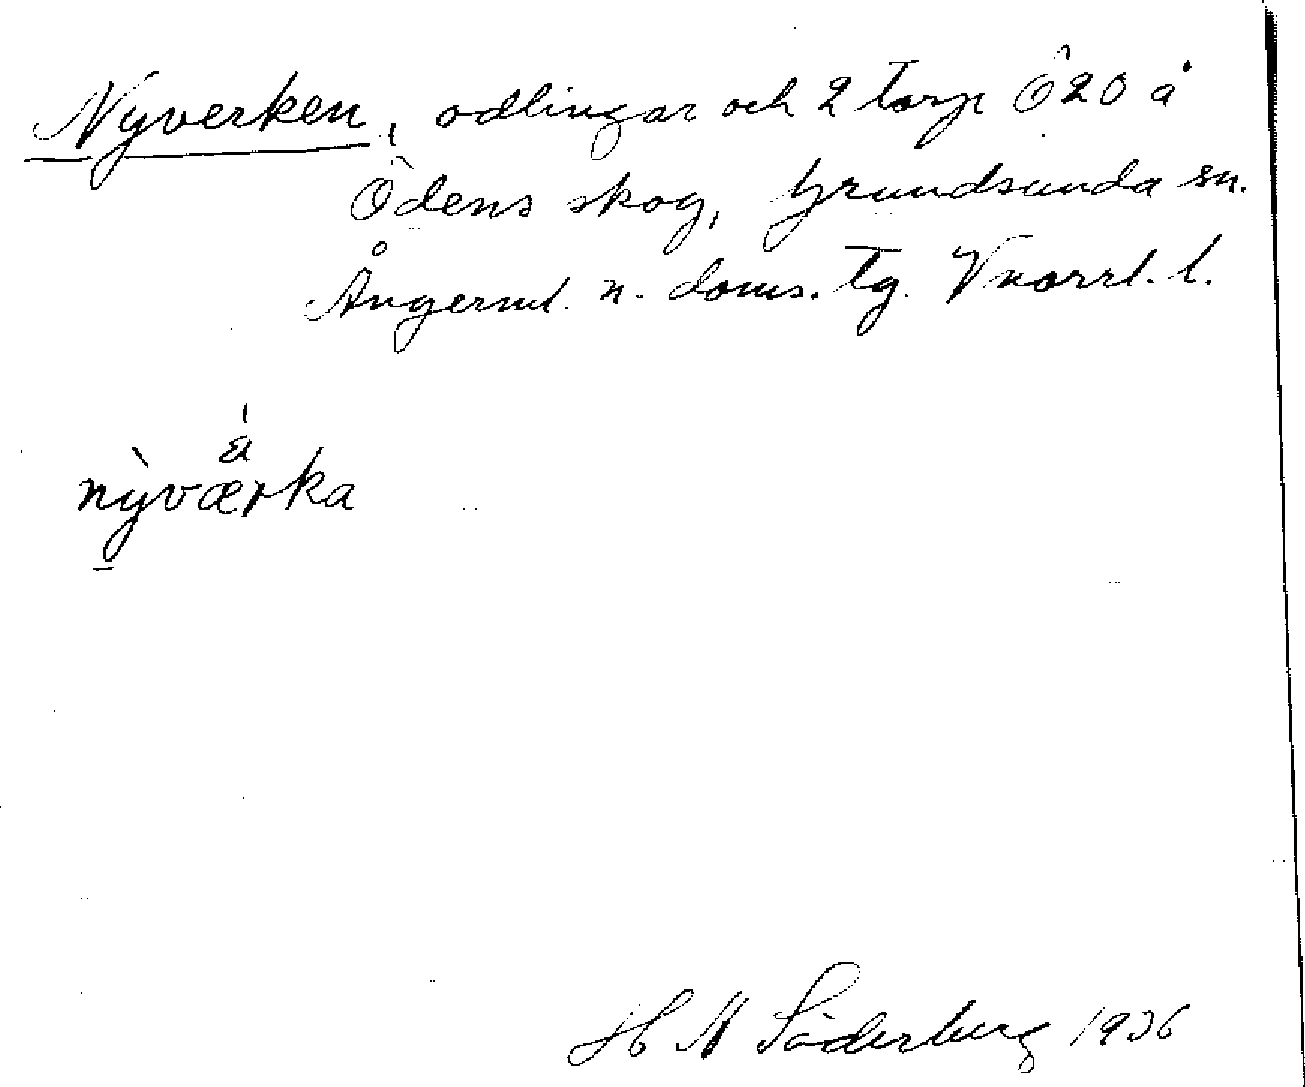 Nyverken, odlingar och 2 torp Ö20 å
Ödens skog, Grundsunda sn.
Ångerml. n. doms. tg. Vnorrl. l.
å
nỳværka
H M Söderberg 1936